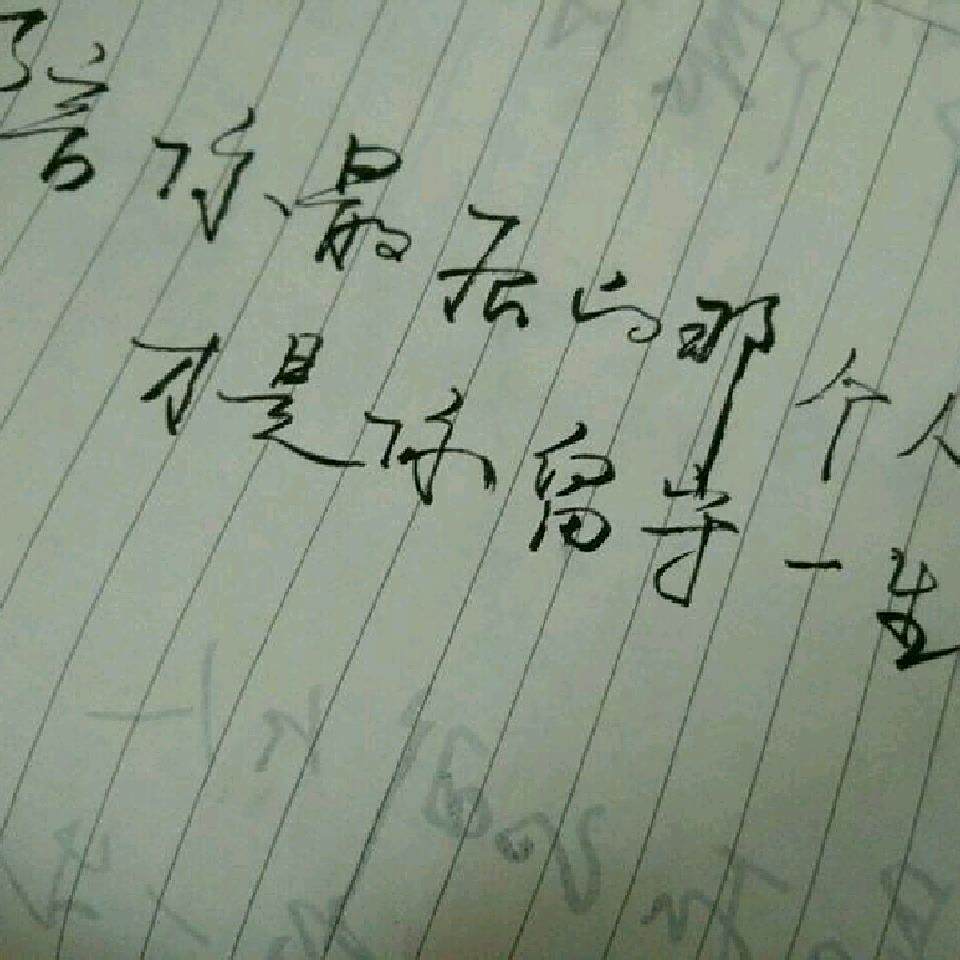 陪你最后的那个人
才是你留守一生